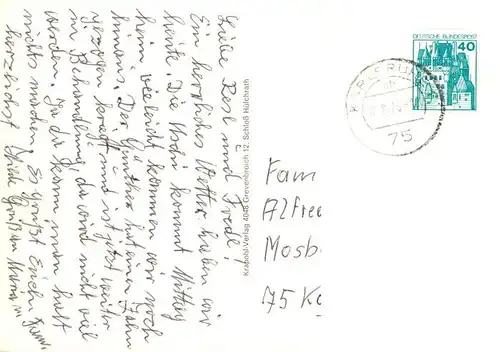 Liebe Resl und Fredel!
Ein herrliches Wetter haben wir
heute. Die Uschi kommt Mittag
heim vieleicht kommen wir noch
hinaus. Der Günther hat einen Zahn
gezogen kregt und ist jetzt weiter
in Behandlung, da wird nicht viel
werden. Ja da kann man halt
nichts machen. Es grüßt Euch
herzlichst
Krapohl-Verlag 4048 Grevenbroich 12. Schloß Hülchrath
DEUTSCHE BUNDESPOST
40
KARLSRUHE
75
Fam
Alfre
Mosb
75 Ka